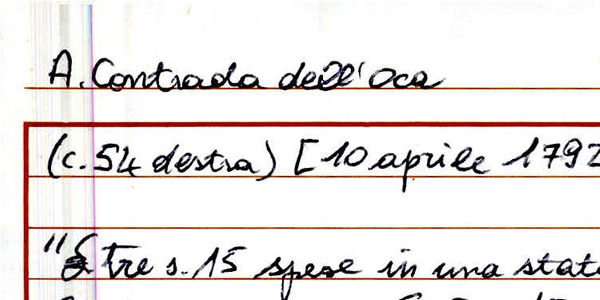 A. Contrada dell'Oca
(c. 54 destra) [10 aprile 1792
" £ tre s. 15 spese in una stat